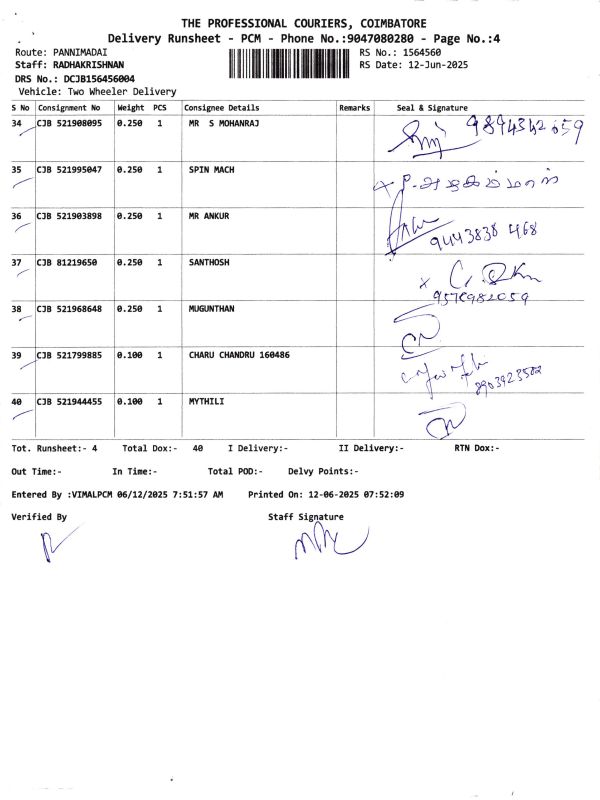 THE PROFESSIONAL COURIERS, COIMBATORE
Delivery Runsheet - PCM - Phone No.:9047080280 - Page No.:4
Route: PANNIMADAI RS No.: 1564560
Staff: RADHAKRISHNAN RS Date: 12-Jun-2025
DRS No.: DCJB156456004
Vehicle: Two Wheeler Delivery
S No Consignment No Weight PCS Consignee Details Remarks Seal & Signature
34 CJB 521908095 0.250 1 MR S MOHANRAJ 9894342659
35 CJB 521995047 0.250 1 SPIN MACH
36 CJB 521903898 0.250 1 MR ANKUR 9443838 468
37 CJB 81219650 0.250 1 SANTHOSH
38 CJB 521968648 0.250 1 MUGUNTHAN
39 CJB 521799885 0.100 1 CHARU CHANDRU 160486
40 CJB 521944455 0.100 1 MYTHILI
Tot. Runsheet:- 4 Total Dox:- 40 I Delivery:- II Delivery:- RTN Dox:-
Out Time:- In Time:- Total POD:- Delvy Points:-
Entered By :VIMALPCM 06/12/2025 7:51:57 AM Printed On: 12-06-2025 07:52:09
Verified By Staff Signature